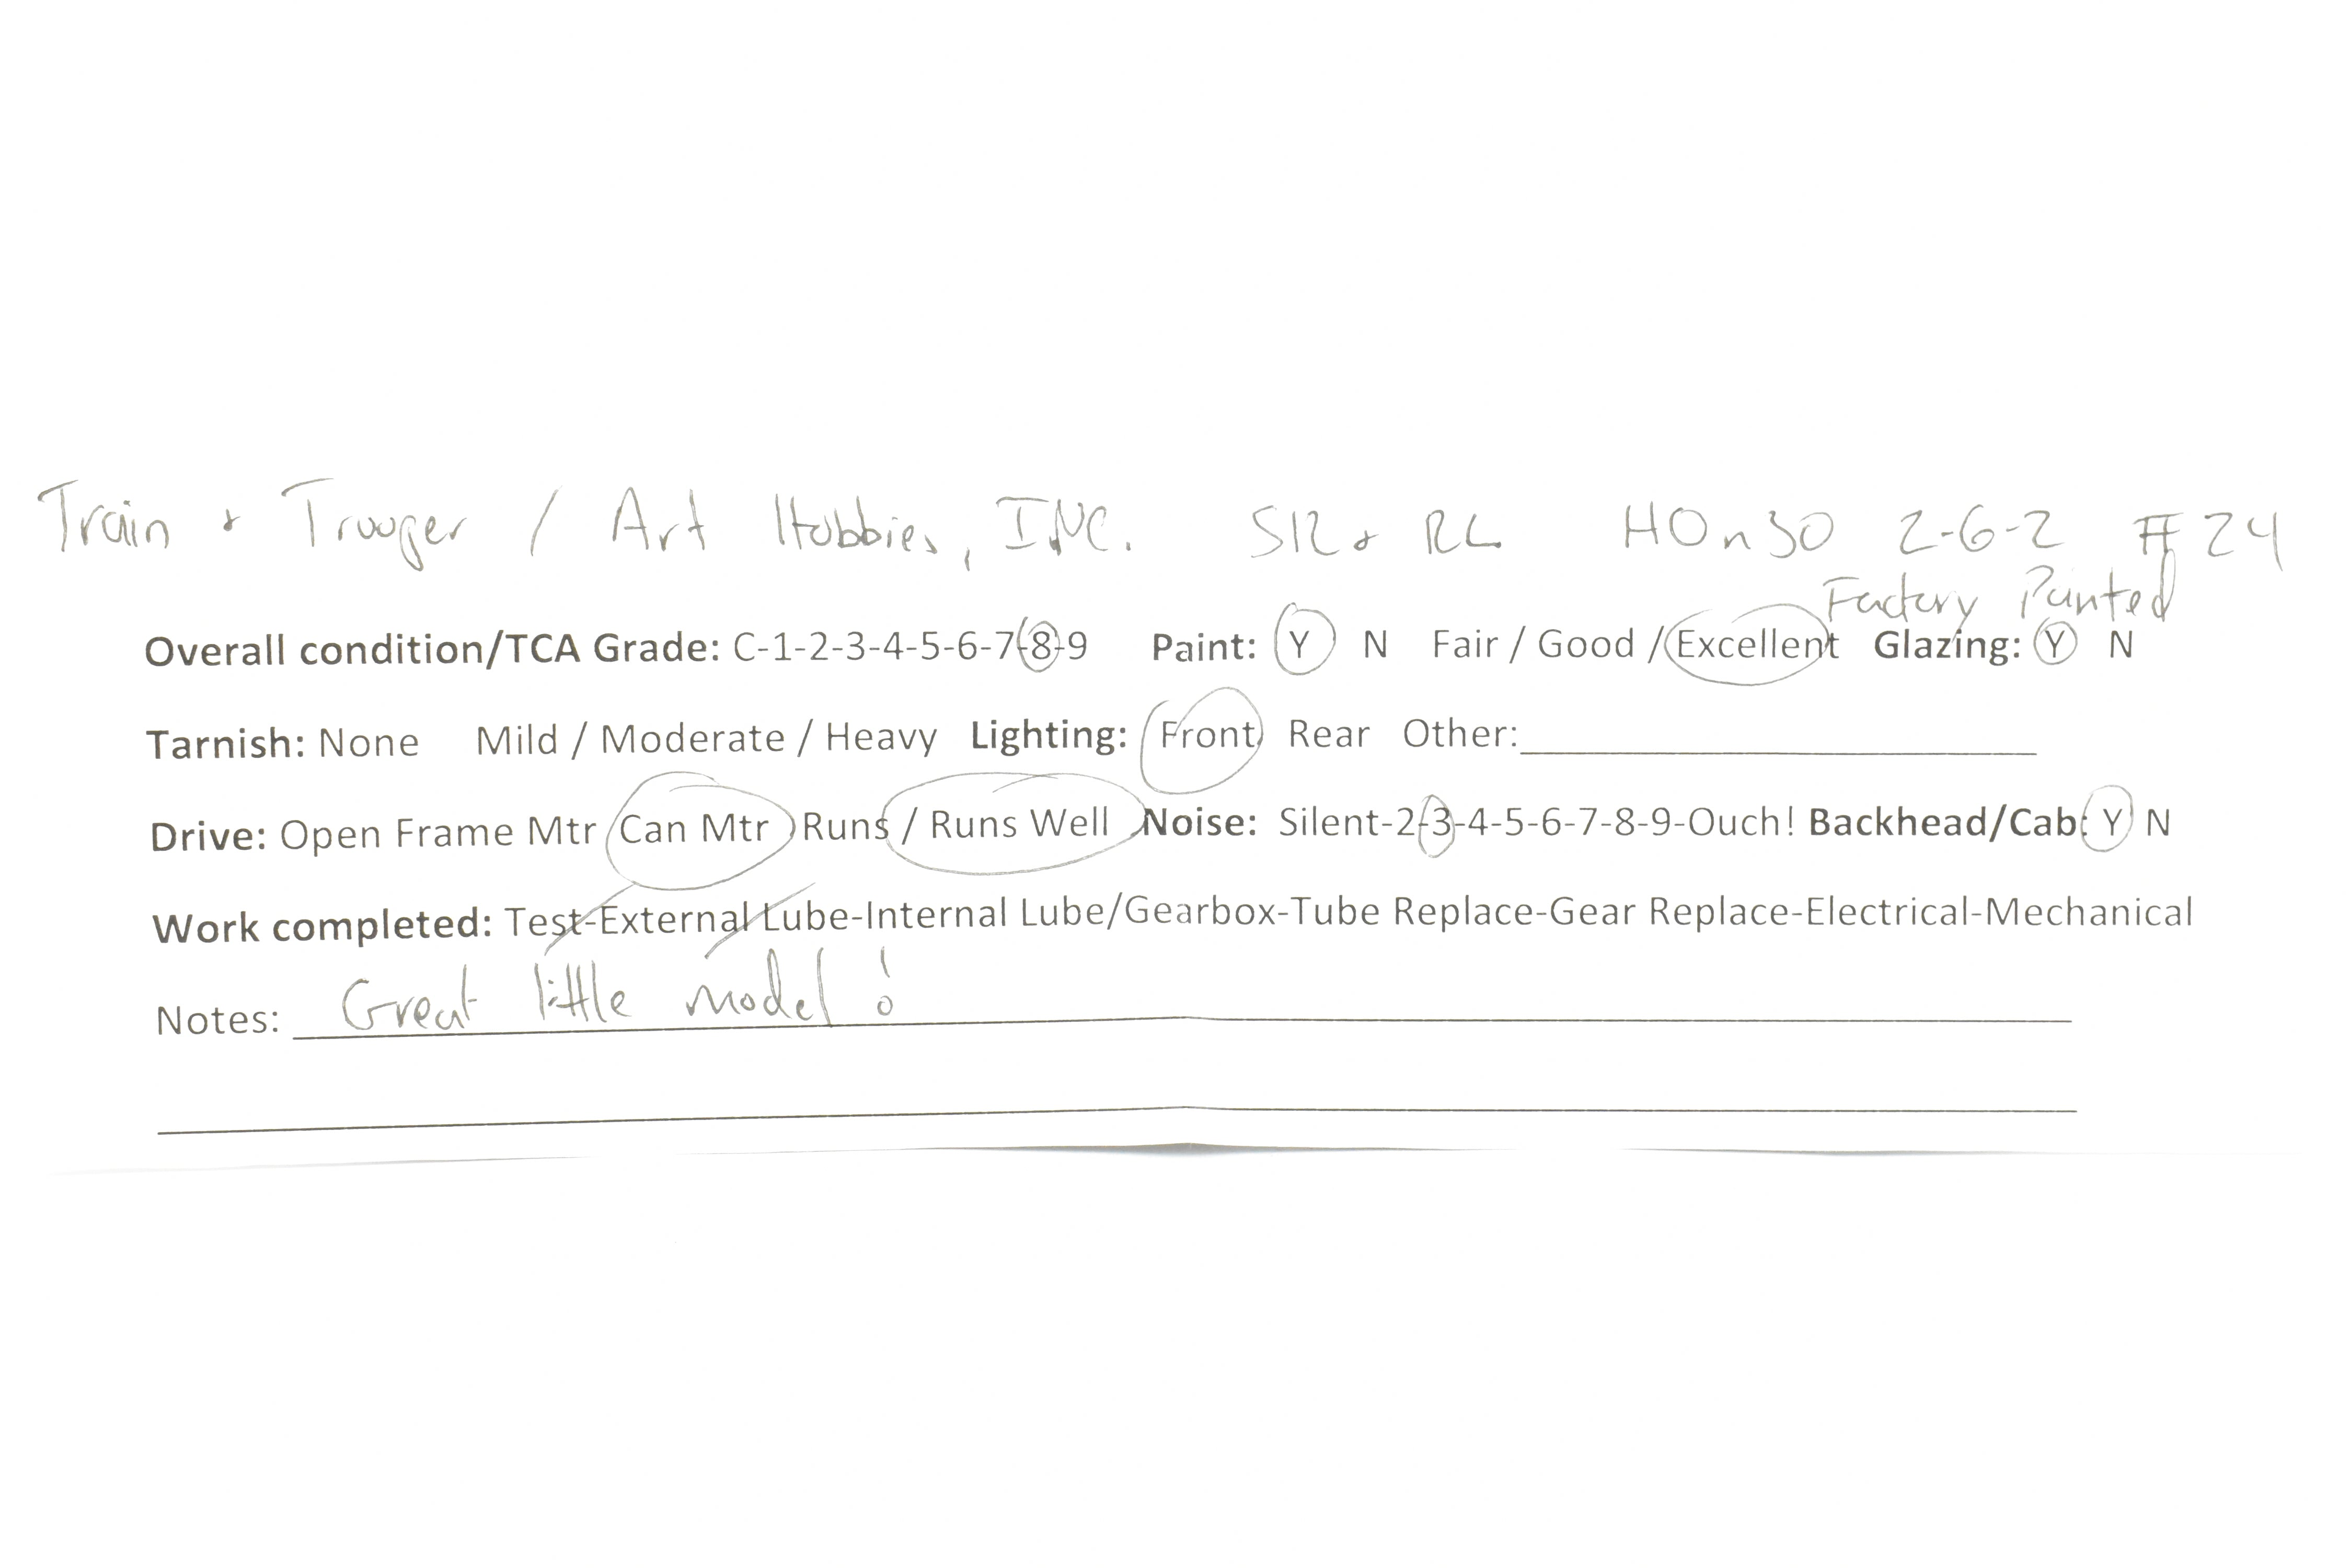 Train & Trooger / Art Hobbies, INC. SR & RL HOn30 2-6-2 #24
Factory Painted
Overall condition/TCA Grade: C-1-2-3-4-5-6-7-8-9 Paint: Y N Fair / Good / Excellent Glazing: Y N
Tarnish: None Mild / Moderate / Heavy Lighting: Front Rear Other:
Drive: Open Frame Mtr Can Mtr Runs / Runs Well Noise: Silent-2-3-4-5-6-7-8-9-Ouch! Backhead/Cab: Y N
Work completed: Test-External Lube-Internal Lube/Gearbox-Tube Replace-Gear Replace-Electrical-Mechanical
Notes: Great little model !